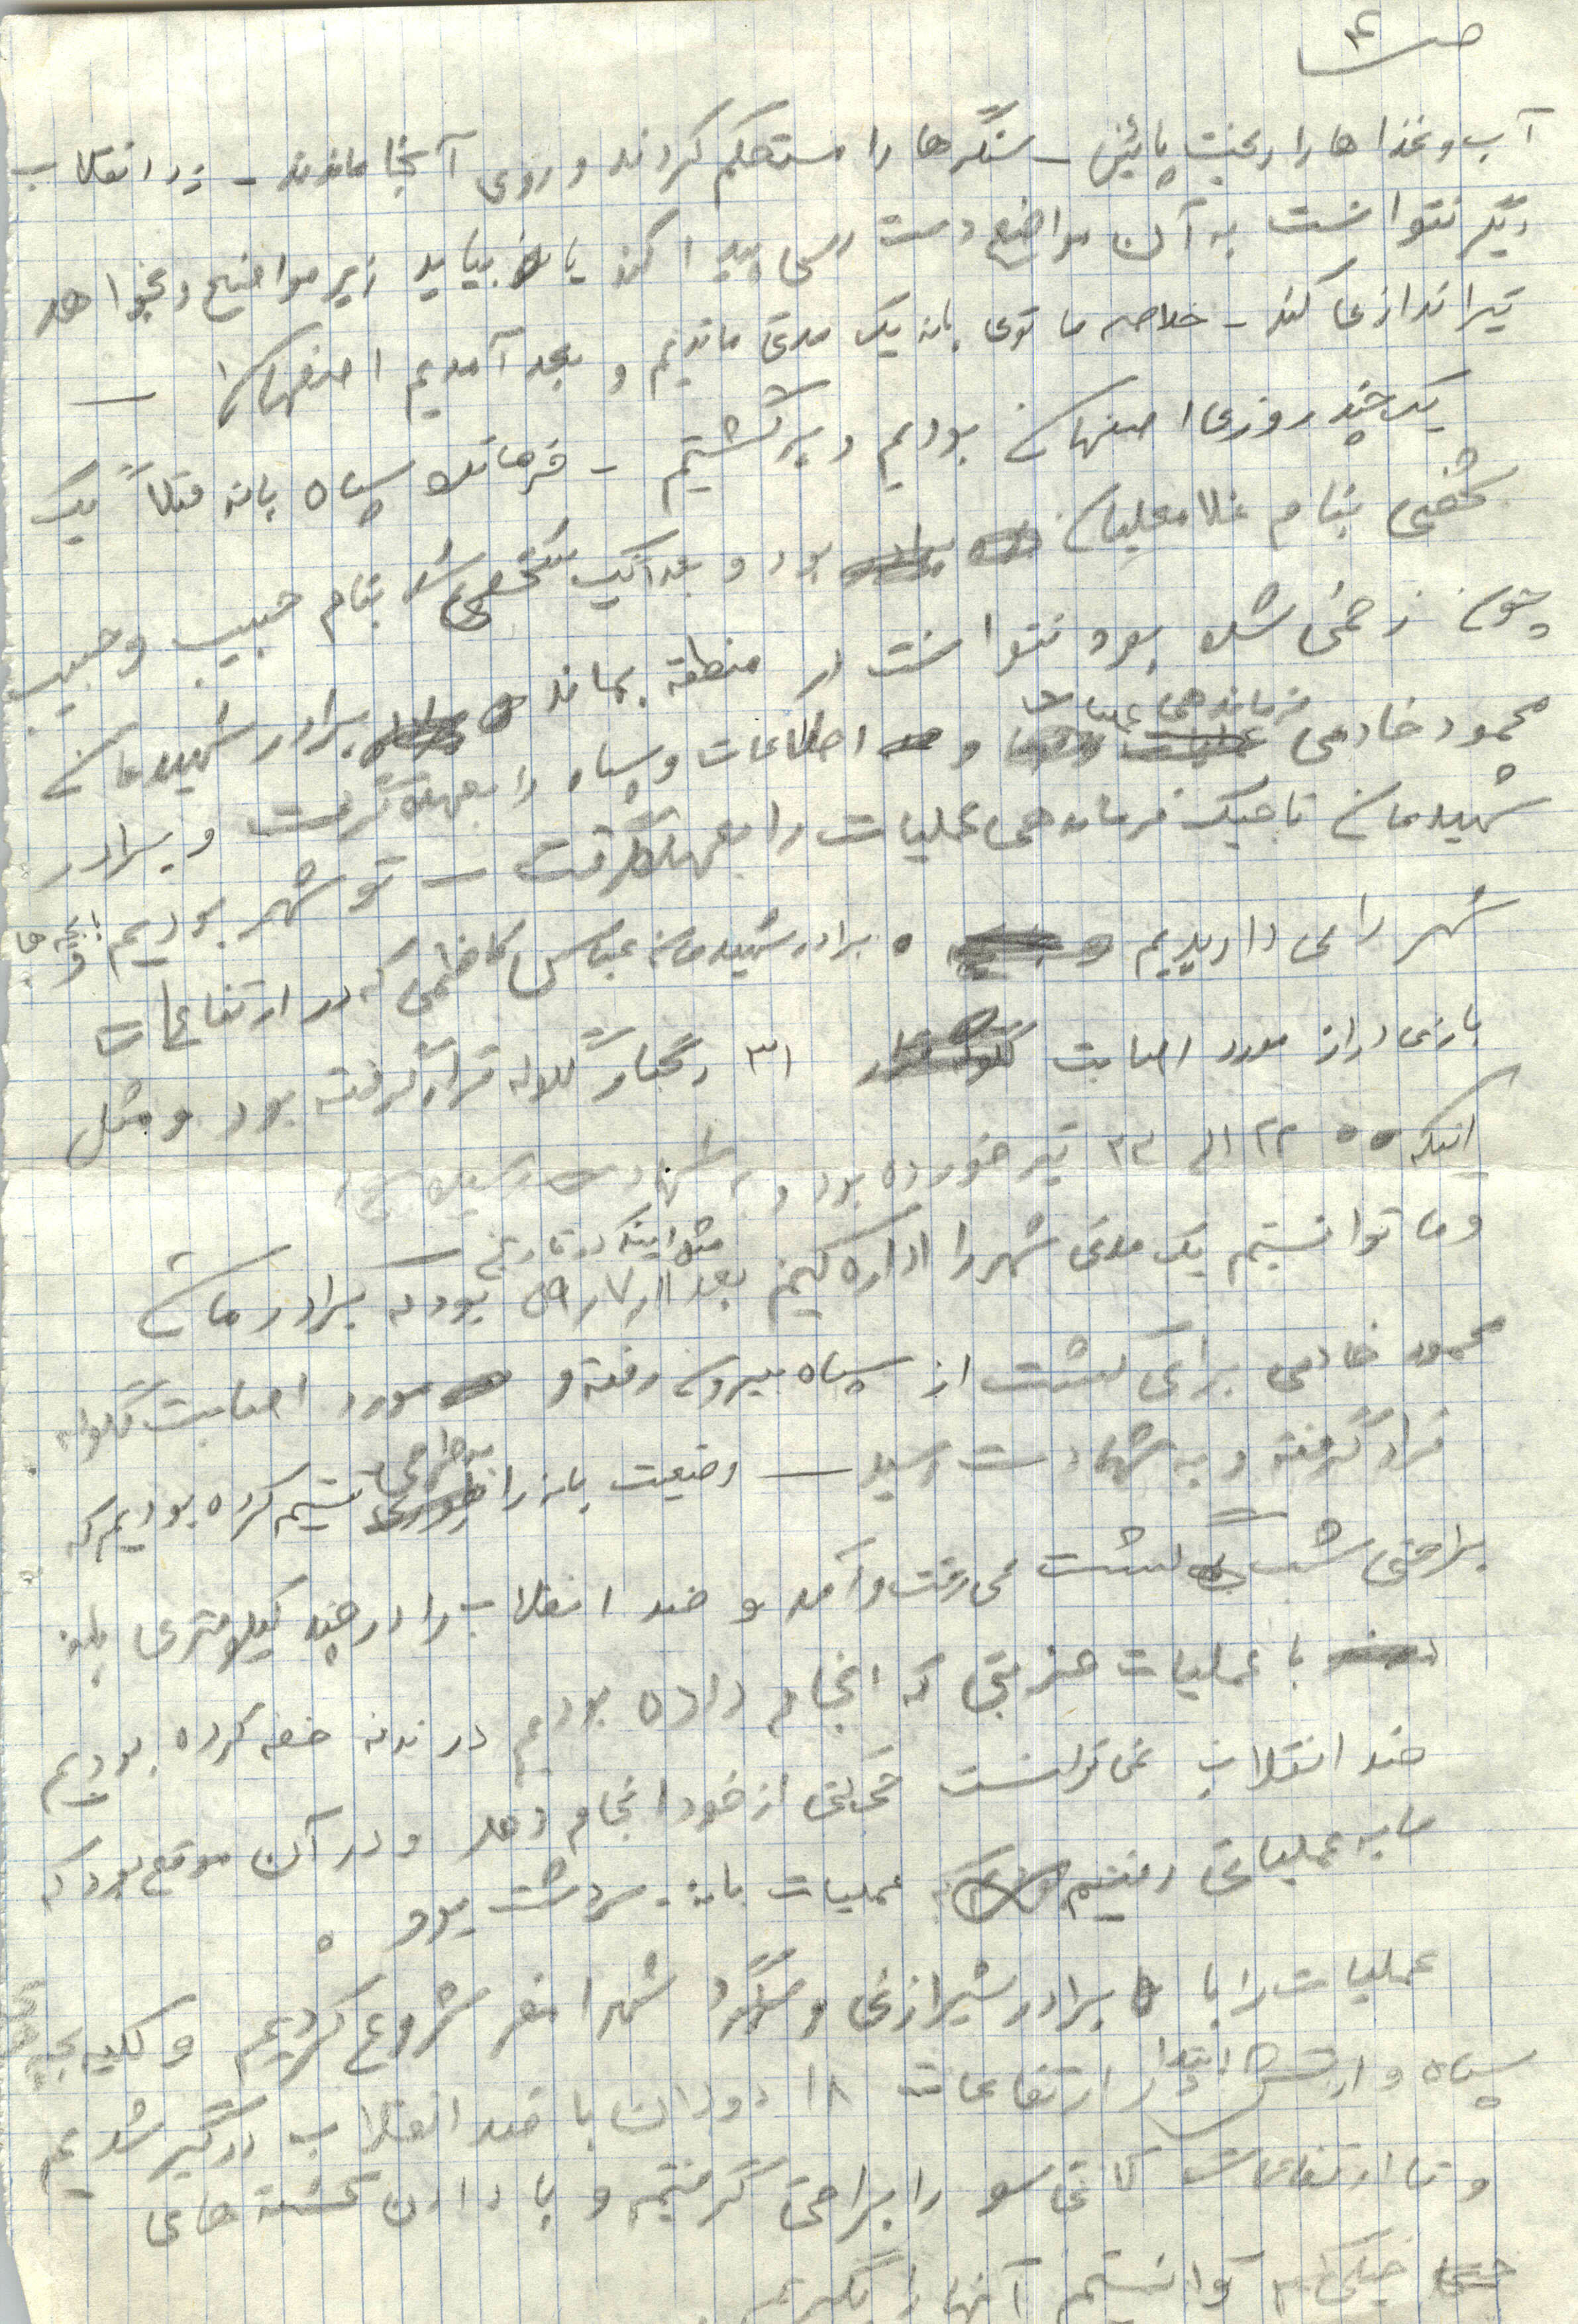 آب و غذاها را ریخت پائین - سنگرها را مستحکم کردند و روی آنجا ماندند - ضد انقلاب
دیگر نتوانست به آن مواضع دست رسی پیدا کند یا بیاید زیر مواضع و بخواهد
تیراندازی کند - خلاصه ما توی بانه یک مدتی ماندیم و بعد آمدیم اصفهان -
یک چند روزی اصفهان بودیم و برگشتیم - فرمانده سپاه بانه قبلاً یک
شخصی بنام غلامعلیان بود و بعداً یک شخصی شد بنام حبیب و حبیب
چون زخمی شده بود نتوانست در منطقه بماند برادر شهیدمان
محمود خادمی فرماندهی عملیات و اطلاعات و سپاه را بعهده گرفت و برادر
شهیدمان تاجیک فرماندهی عملیات را بعهده گرفت - تو شهر بودیم و بچه ها
شهر را می داریدیم برادر شهیدمان عباس کاظمی که در ارتفاعات
بازی دراز مورد اصابت ۳۱ گلوله قرار گرفته بود و مثل
اینکه ۲۲ الی ۲۳ تیر خورده بود و به شهادت رسید
و ما توانستیم یک مدتی شهر را اداره کنیم بعد مثل اینکه در تاریخ ۵۹/۷/۱۱ بود که برادرمان
محمود خادمی برای گشت از سپاه بیرون رفته و مورد اصابت گلوله
قرار گرفته و به شهادت رسید - وضعیت بانه را به طرحی تقسیم کرده بودیم که
براحتی شب گشت می رفت و آمد و ضد انقلاب را در چند کیلومتری بانه
با عملیات ضربتی که انجام داده بودیم در نطفه خفه کرده بودیم
ضد انقلاب نمی توانست حرکتی از خود انجام دهد و در آن موقع بود که
ما به عملیاتی رفتیم که عملیات بانه - سردشت بود
عملیات را با برادر شیرازی و سرگرد شهرامفر شروع کردیم و کلیه بچه های
سپاه و ارتش ابتدا در ارتفاعات ۱۸ دوران با ضد انقلاب درگیر شدیم
و تا ارتفاعات کانی سو را براحتی گرفتیم و با دادن کشته های
خیلی کم توانستیم آنها را بگیریم